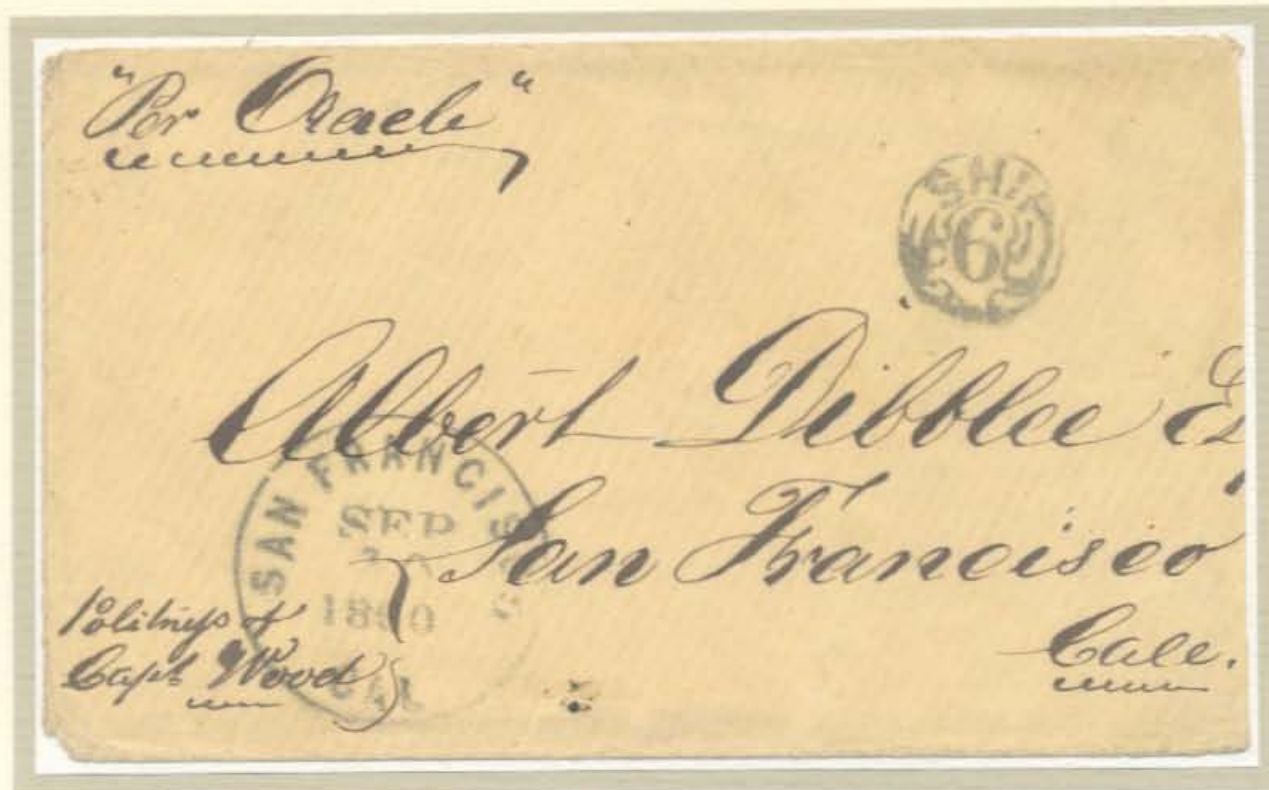 "Per Oracle"
SHIP
6
Albert Dibblee Esq
San Francisco
Cale.
SAN FRANCISCO
SEP
1860
CAL
Politness of
Capt Wood